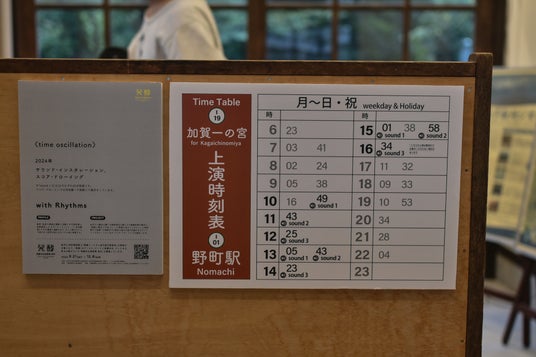 〈time oscillation〉
2024年
サウンド・インスタレーション、
スコア・ドローイング
with Rhythms
Time Table
I
19
加賀一の宮
for Kagaichinomiya
上演時刻表
I
01
野町駅
Nomachi
月〜日・祝 weekday & Holiday
時 時
6 23
7 03 41
8 02 24
9 05 38
10 16 49 sound 1
11 43 sound 2
12 25 sound 3
13 05 sound 1 43 sound 2
14 23 sound 3
15 01 sound 1 38 58 sound 2
16 34 sound 3
17 11 32
18 09 33
19 10 53
20 34
21 28
22 04
23